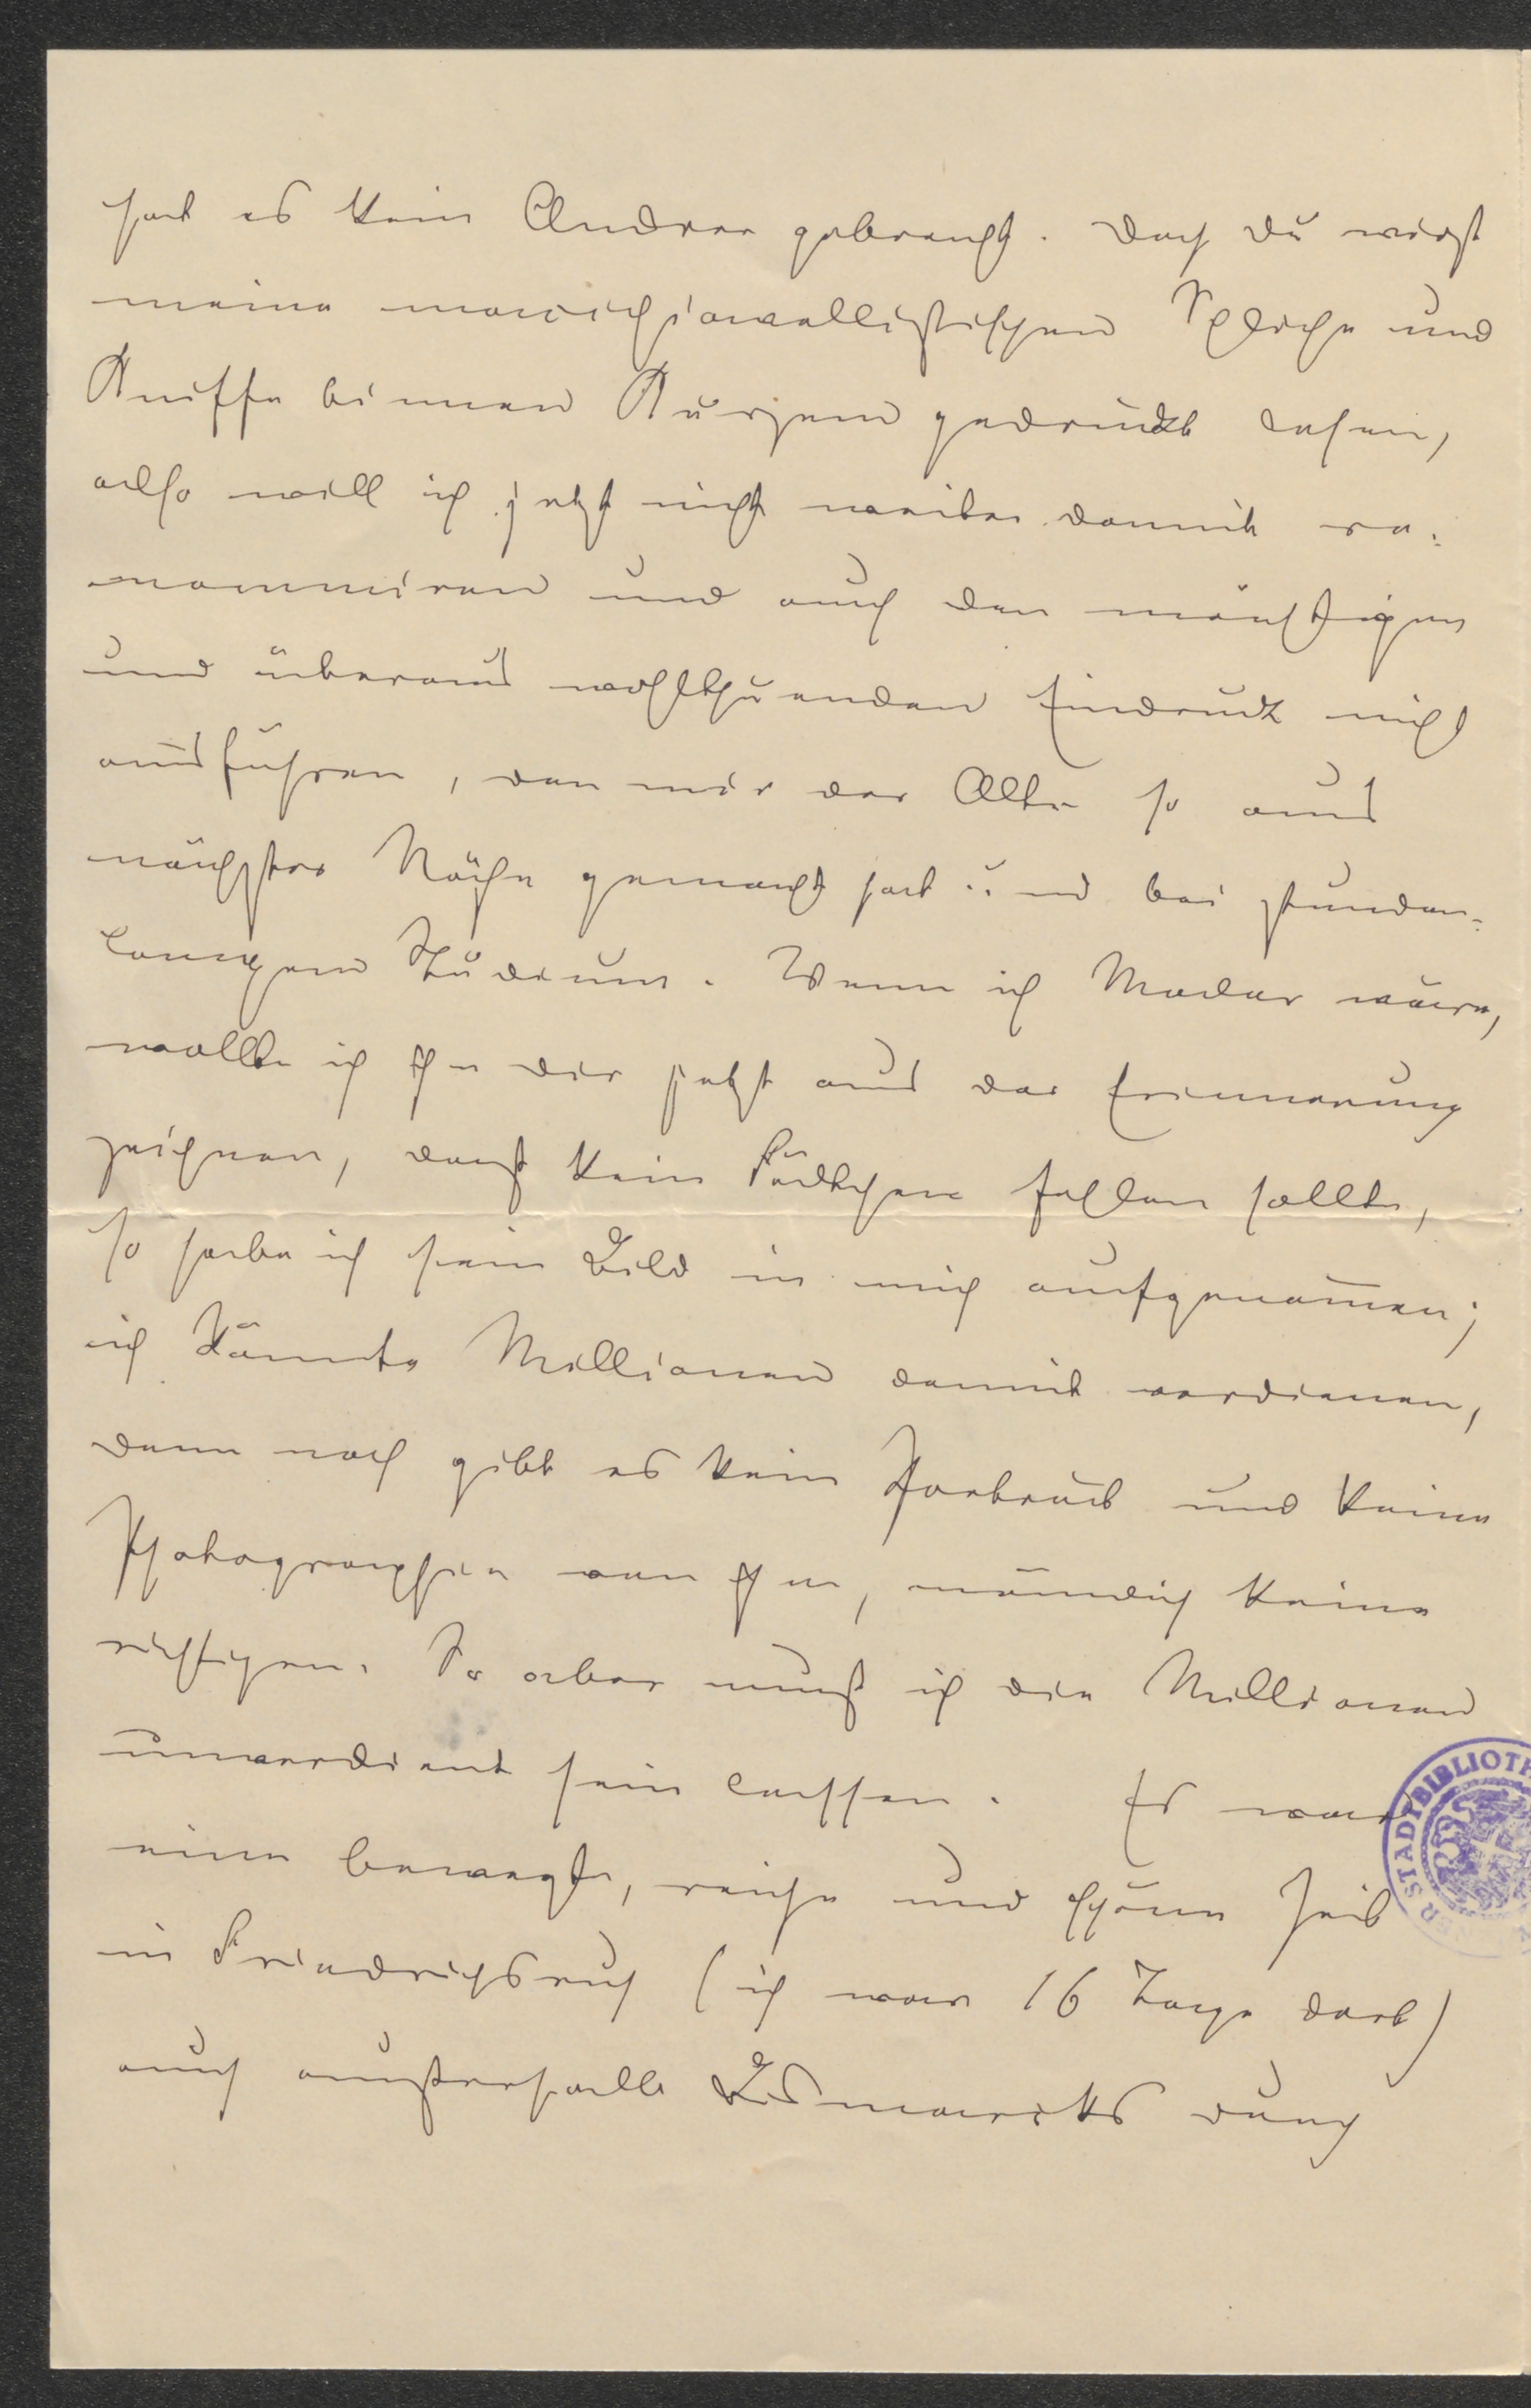 hat es kein Andrer gebracht. Doch du wirst
meine macchiavellistischen Schliche und
Kniffe binnen Kurzem gedruckt lesen,
also will ich jetzt nicht weiter damit re-
nommiren und auch den mächtigen
und überaus wohlthuenden Eindruck nicht
ausführen, den mir der Alte so aus
nächster Nähe gemacht hat und bei stunden-
langem Studium. Wenn ich Maler wäre,
wollte ich ihn dir jetzt aus der Erinnerung
zeichnen, daß kein Fältchen fehlen sollte,
so habe ich sein Bild in mich aufgenomen;
ich könnte Millionen damit verdienen,
denn noch gibt es kein Portrait und keine
Photographie von ihm, nämlich keine
richtigen. So aber muß ich die Millionen
unverdient sein lassen. Es war
eine bewegte, reiche und schöne Zeit
in Friedrichsruh (ich war 16 Tage dort)
auch außerhalb Bismarcks durch
STADTBIBLIOTH